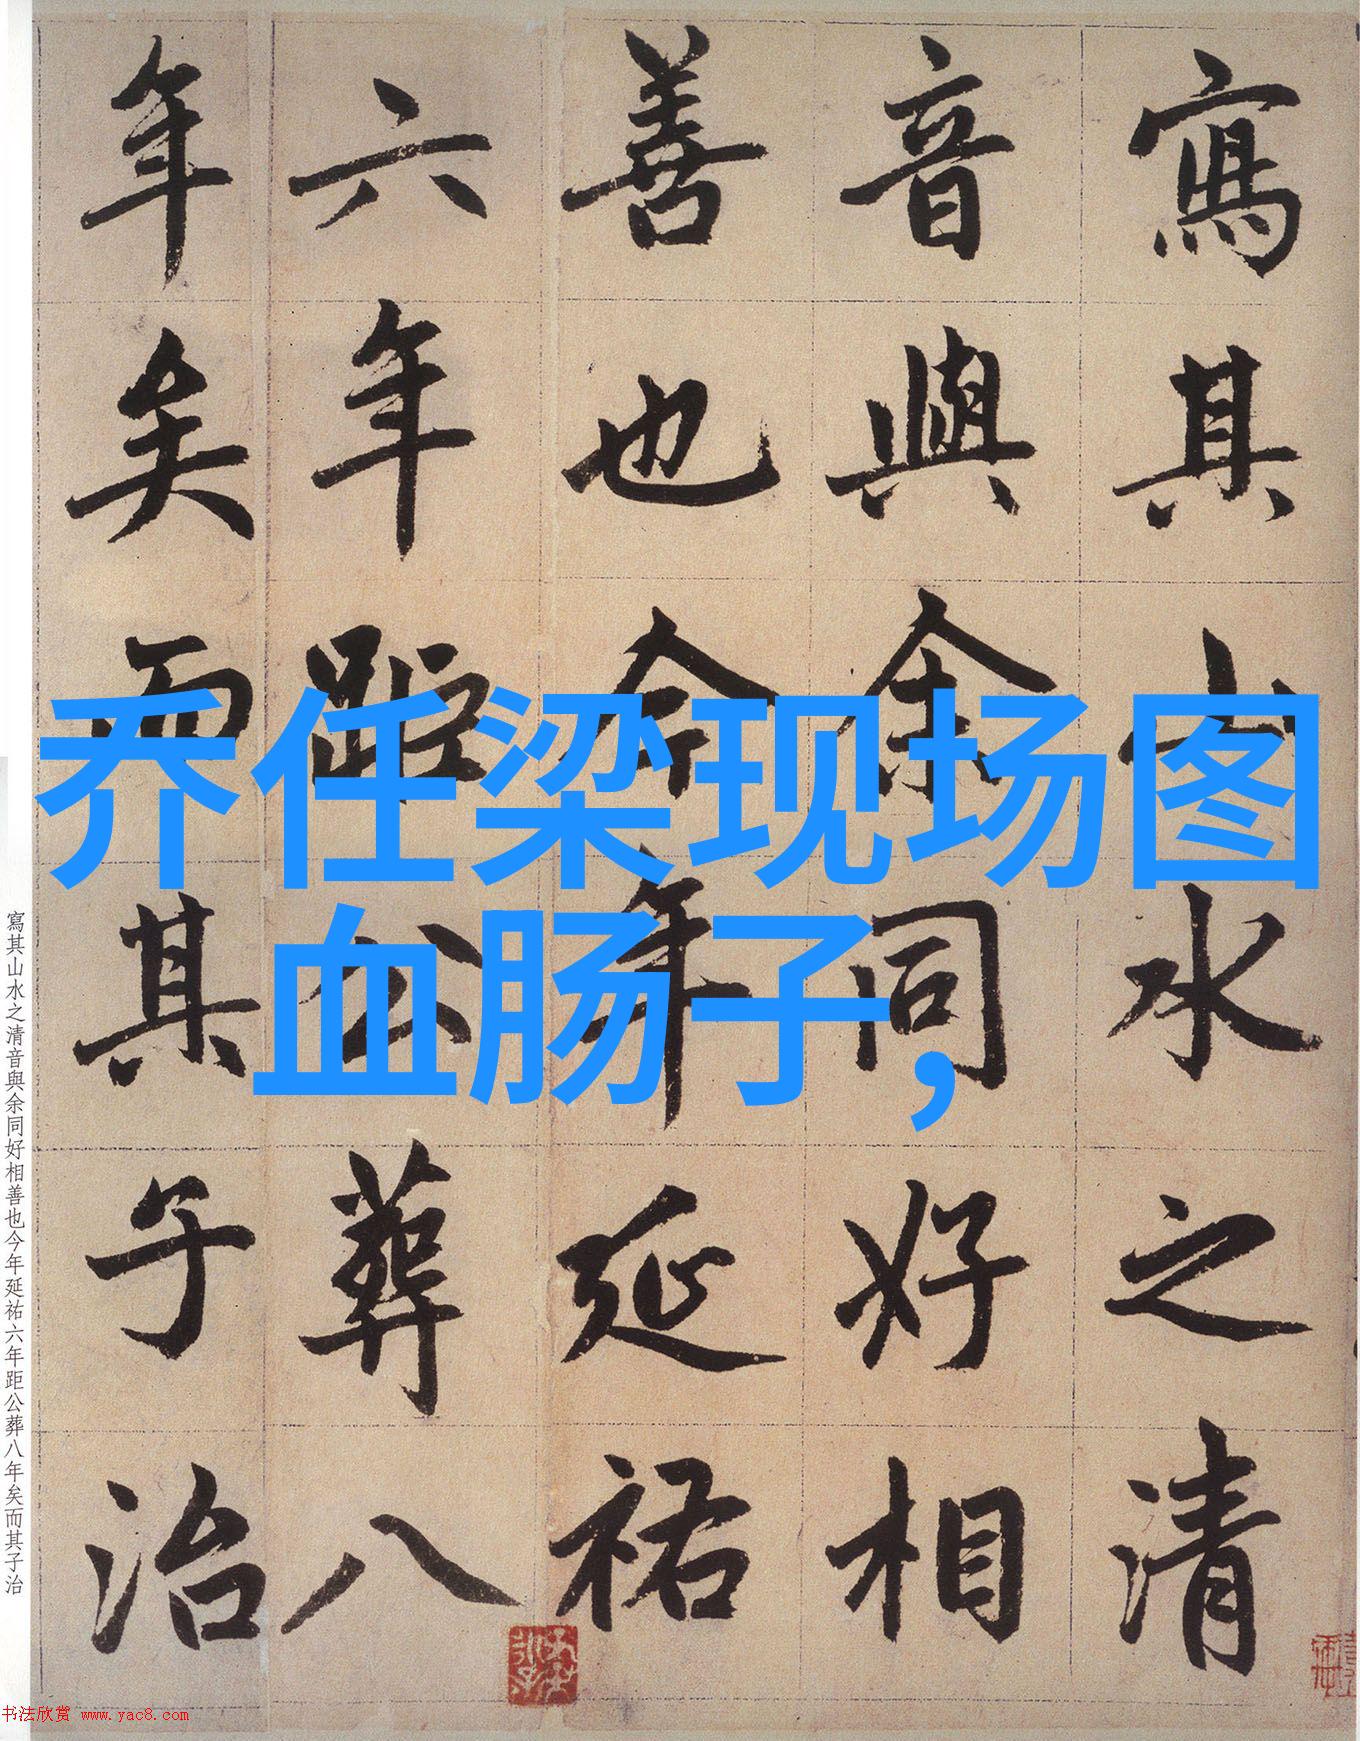 寫其山水之清
音與余同好相
善也今年延祐
六年距公葬八
年矣而其子治
乔任梁现场图
血肠子,
寫其山水之清音與余同好相善也今年延祐六年距公葬八年矣而其子治
书法欣赏 www.yac8.com